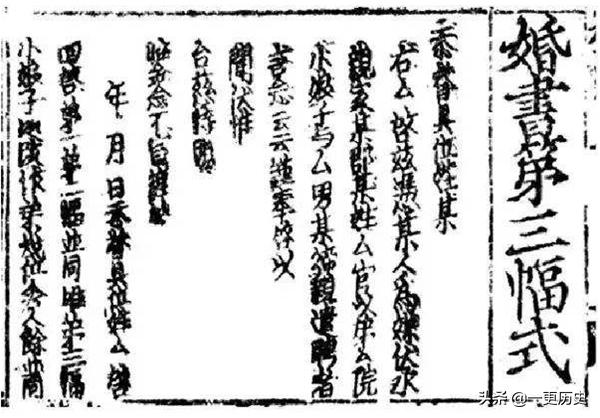 婚書第三幅式
忝眷具位姓某
右厶啟茲馮某人為媒伏承
親家某郡某姓厶官以第厶院
小娘子與厶男某議親遣聘者
云云謹奉啓以
聞伏惟
台慈特賜
念不宣謹
年 月 日忝眷具位姓厶 啓
第一第二幅並同唯第三幅
小娘子 作某 令人餘並同
头条 @一更历史